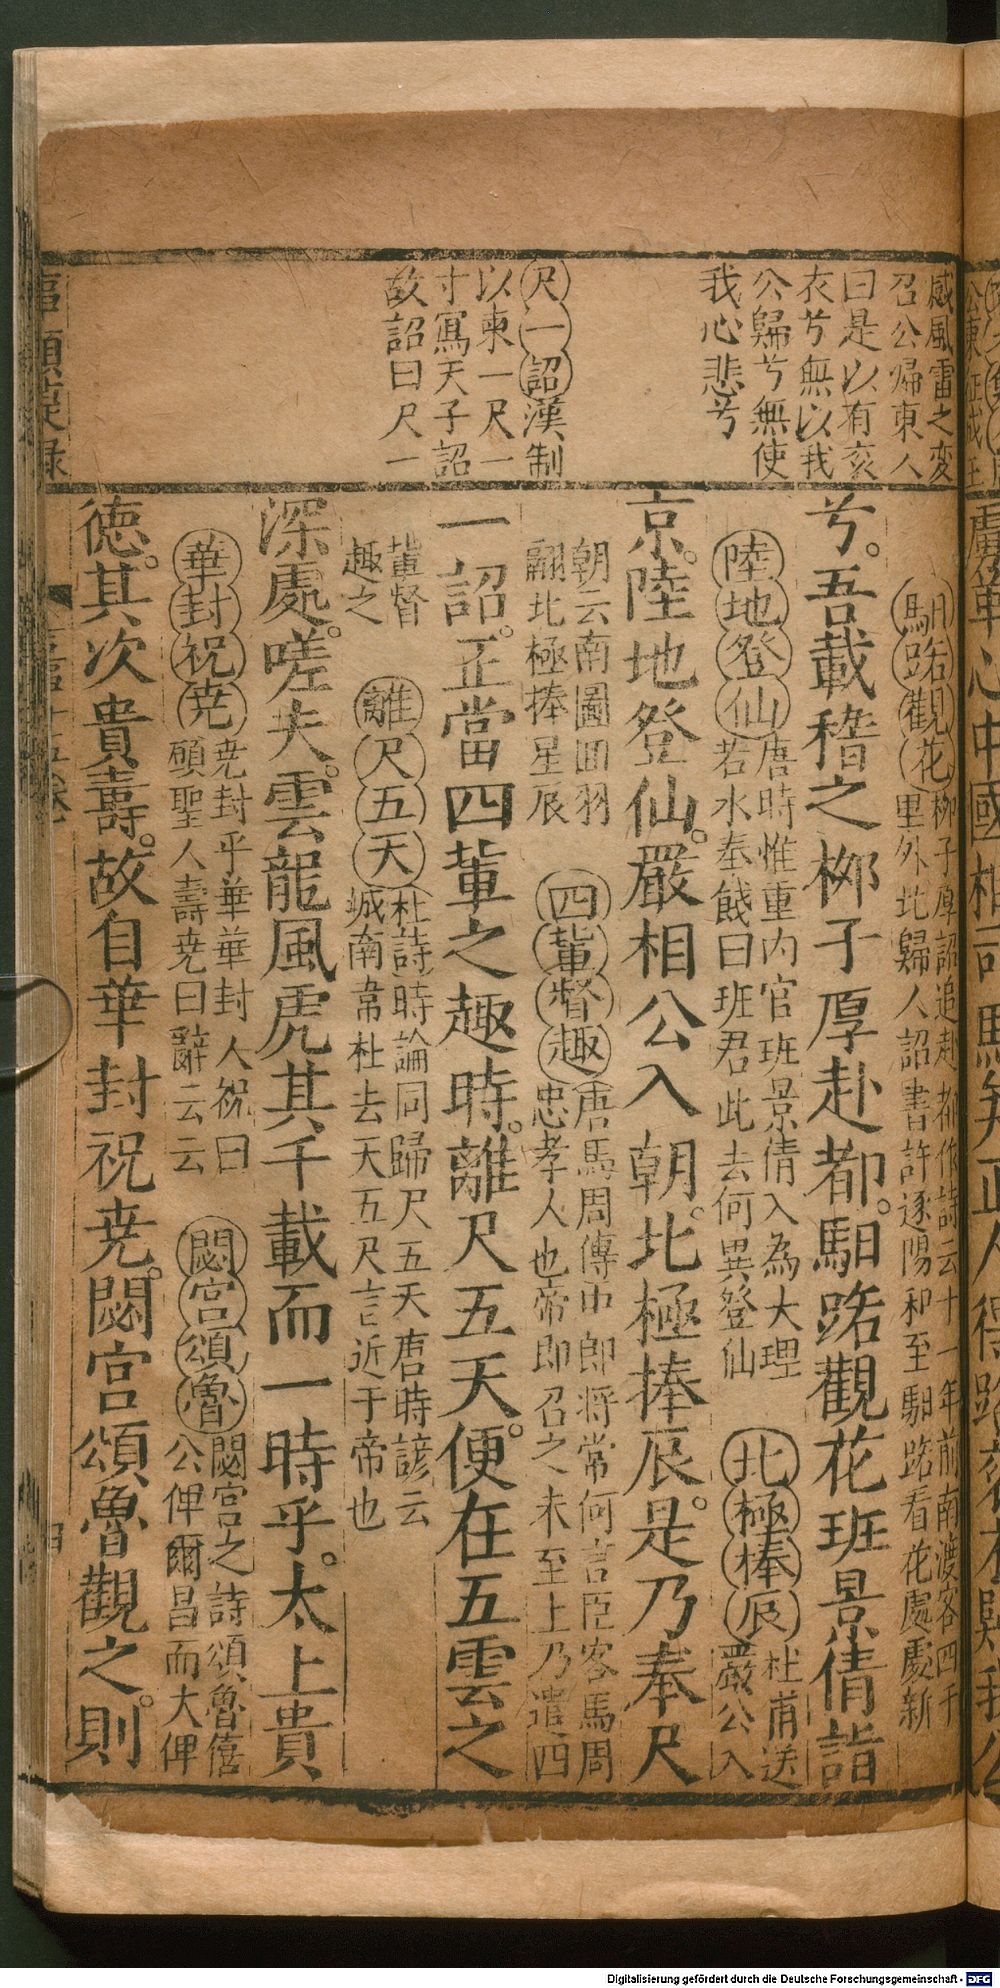 感風雷之変
召公歸東人
曰是以有衮
衣兮無以我
公歸兮無使
我心悲兮
尺一詔漢制
以柬一尺一
寸寫天子詔
故詔曰尺一
馹路觀花柳子厚詔追赴都作詩云十一年前南渡客四千
里外北歸人詔書許逐陽和至馹路看花處處新
兮。吾載稽之柳子厚赴都。馹路觀花班景倩詣
陸地登仙唐時惟重内官班景倩入為大理
若水奉餞曰班君此去何異登仙
北極捧辰杜甫送
嚴公入
京。陸地登仙。嚴相公入朝。北極捧辰。是乃奉尺
朝云南圖回羽
翮北極捧星辰
四輩督趣唐馬周傳中郎將常何言臣客馬周
忠孝人也帝即召之未至上乃遣四
一詔。正當四輩之趣時。離尺五天。便在五雲之
輩督
趣之
離尺五天杜詩時論同歸尺五天唐時諺云
城南韋杜去天五尺言近于帝也
深處。嗟夫。雲龍風虎其千載而一時乎。太上貴
華封祝尭尭封乎華華封人祝曰
願聖人壽尭曰辭云云
閟宮頌魯閟宮之詩頌魯僖
公俾爾昌而大俾
德。其次貴壽。故自華封祝尭。閟宮頌魯觀之。則
Digitalisierung gefördert durch die Deutsche Forschungsgemeinschaft - DFG